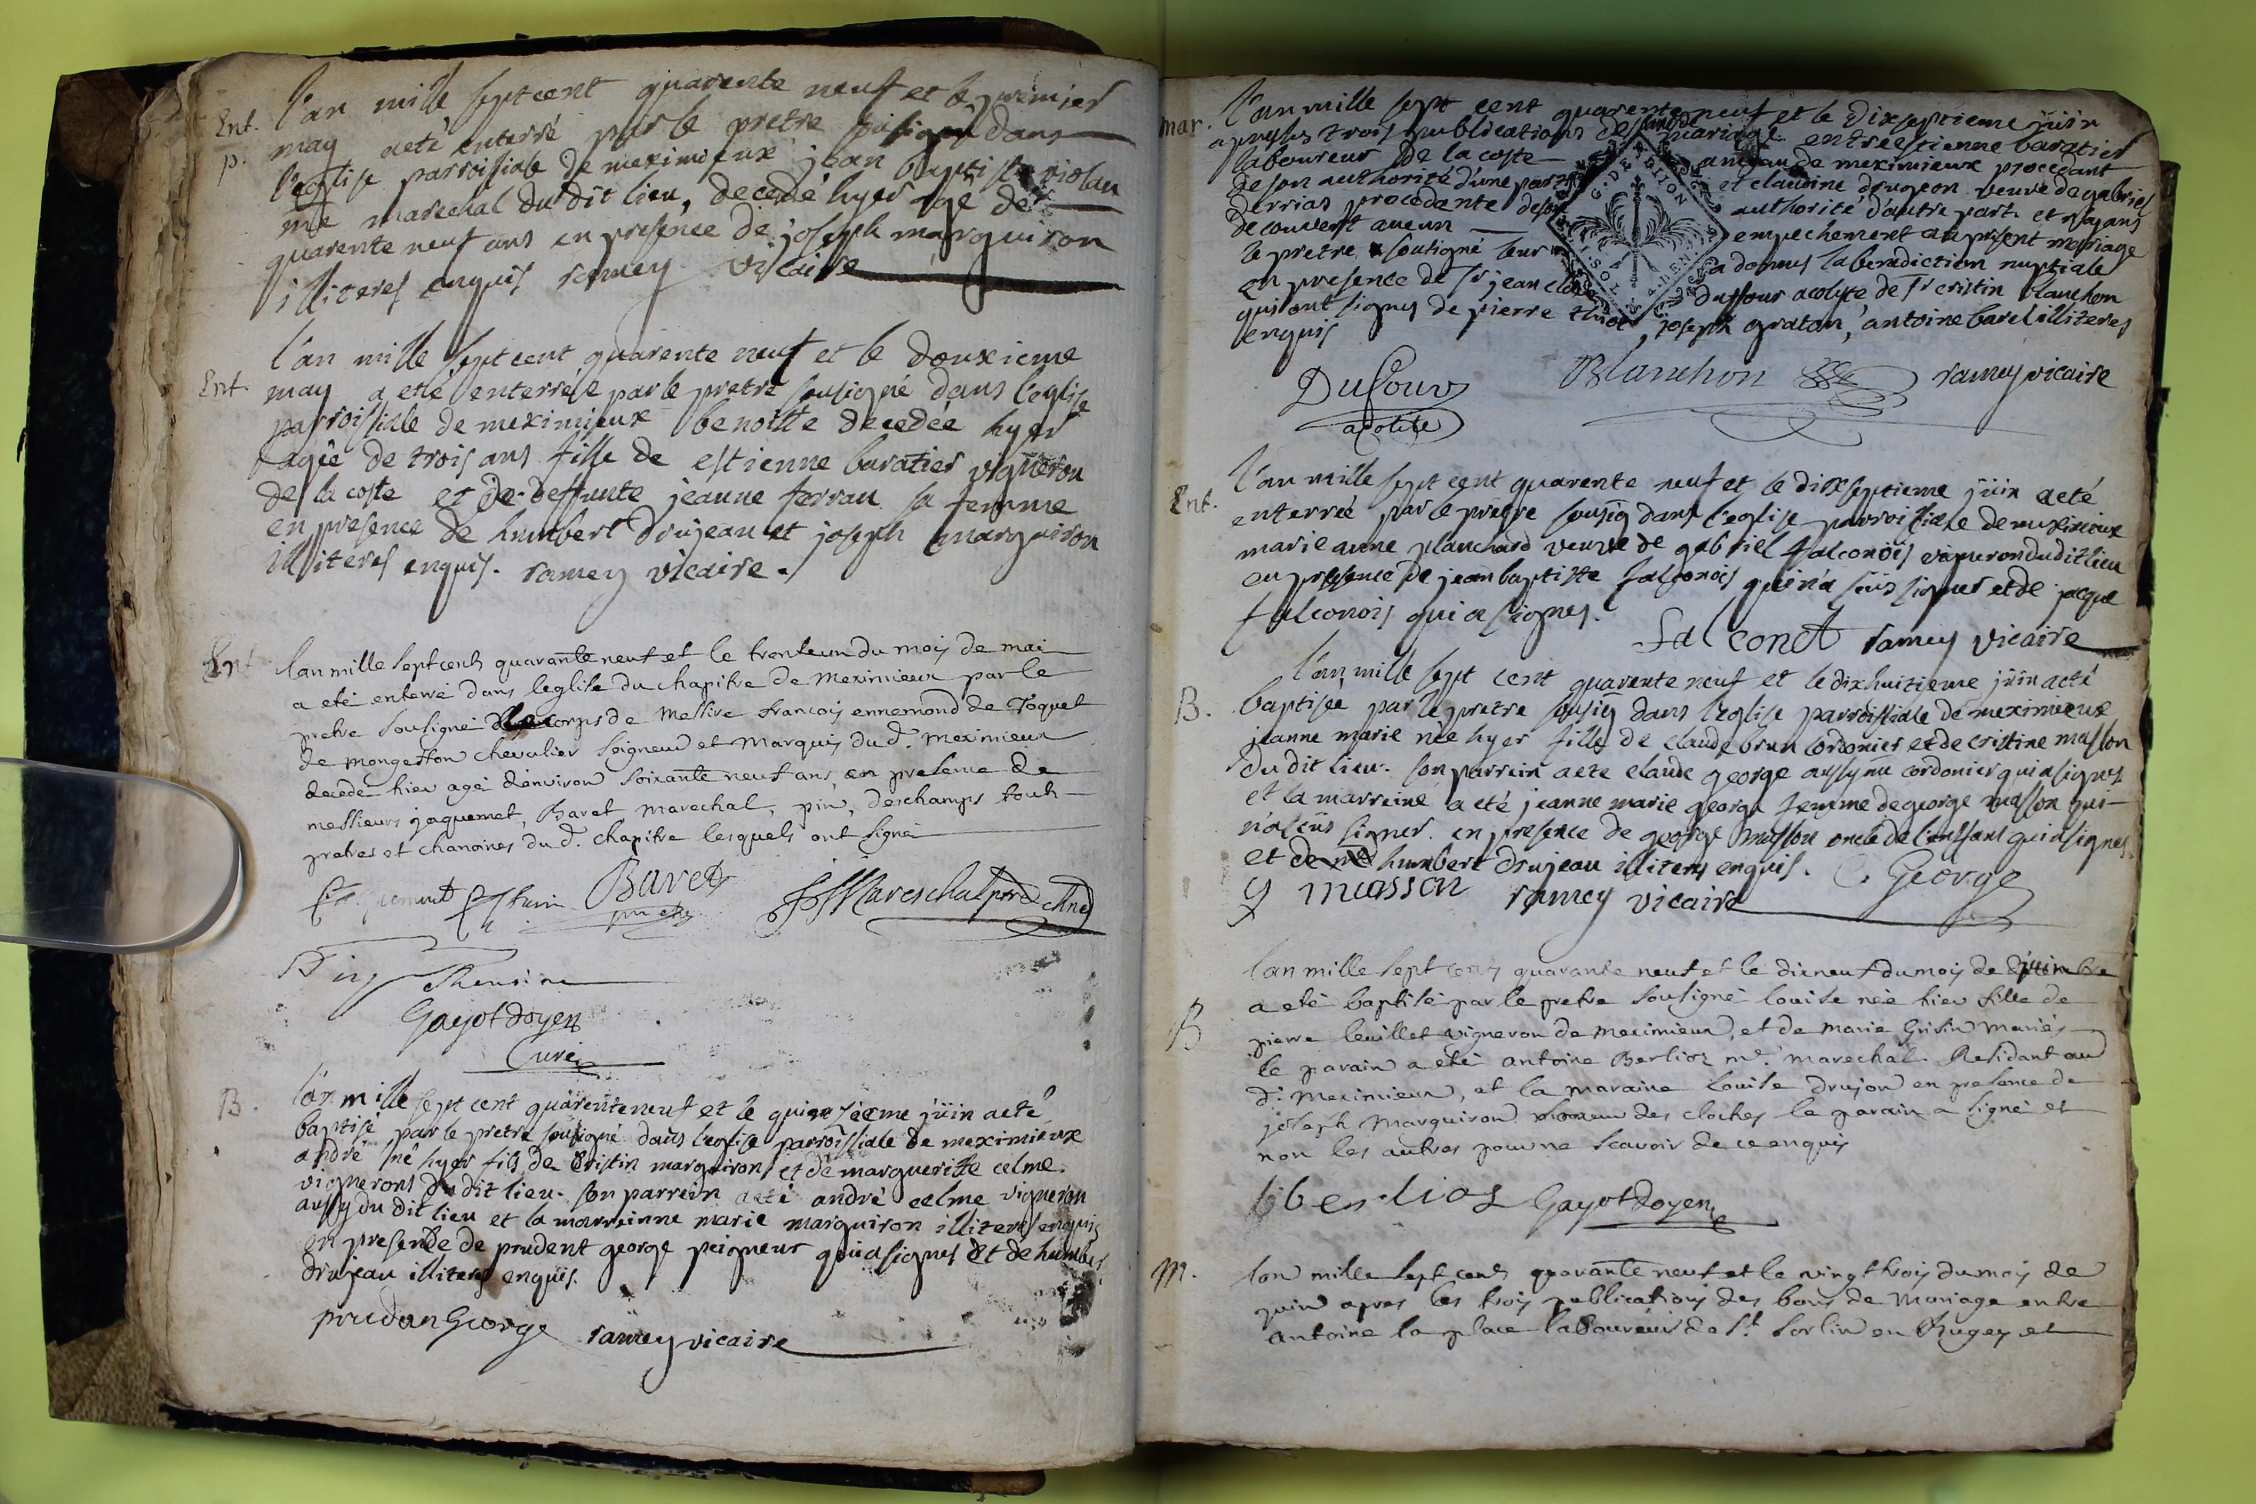 Ent.
p.
l'an mille sept cent quarente neuf et le premier
may a eté enterré par le pretre sousigné dans
l'eglise parroissiale de meximieux jean baptiste violau
me marechal du dit lieu, decedé hyer agé de
quarente neuf ans en presence de joseph marguiron
illiteres enquis ramey vicaire
Ent.
l'an mille sept cent quarente neuf et le douxieme
may a eté enterrée par le pretre sousigné dans l'eglise
parroissialle de meximieux benoitte decedée hyer
agée de trois ans fille de estienne baratier vigneron
de la coste et de deffunte jeanne ferran sa femme
en presence de humbert drujean et joseph marguiron
illiteres enquis. ramey vicaire.
Ent
lan mille sept cents quarante neuf et le trenteun du mois de mai
a eté enterré dans leglise du chapitre de meximieux par le
pretre sousigné le corps de Messire francois ennemond de Toquet
de mongeffon chevalier seigneur et Marquis du d. meximieux
decedé hier agé denviron soixante neuf ans, en presence de
messieurs jaquemet, Baret marechal, pin, deschamps touts
pretres et chanoines du d. chapitre lesquels ont signé
Baret
Mareschal
Pin
Gayot doyen
Curé
B.
l'an mille sept cent quarente neuf et le quinsieme jüin a eté
baptisé par le pretre sousigné dans l'eglise parroissiale de meximieux
andré né hyer fils de Cristin marguiron et de margueritte celme
vignerons du dit lieu. son parrein a eté andré celme vigneron
aussy du dit lieu et la marreinne marie marguiron illiteres enquis
en presence de prudent george peigneur qui a signes et de humber
drujean illiteres enquis.
prudan George ramey vicaire
mar.
l'an mille sept cent quarente neuf et le dixseptieme jüin
apres les trois publications de mariage entre estienne baratier
laboureur de la coste anneau de meximieux procedant
de son authorité d'une part et claudine drugeon veuve de gabriel
derrias procedante de son authorité d'autre part et n'ayans
decouvert aucun empechement au present mariage
le pretre sousigné leur a donnes la benediction nuptiale
en presence de sr jean claude duffour acolyte de sr cristin blanchon
qui ont signes de pierre joseph graton, antoine barel illiteres
enquis
G. DE DIJON
Dufour Blanchon ramey vicaire
acolite
Ent.
l'an mille sept cent quarente neuf et le dixseptieme jüin a eté
enterreé par le pretre sousig dans l'eglise parroissiale de meximieux
marie anne planchard veuve de gabriel falconois vigneron du dit lieu
en presence de jean baptiste falconois qui n'a sçus signer et de jacque
falconois qui a signes.
falconet ramey vicaire
B.
l'an mille sept cent quarente neuf et le dixhuitieme jüin a eté
baptisée par le pretre sousig dans l'eglise parroissiale de meximieux
jeanne marie née hyer fille de claude brun cordonier et de cristine masson
du dit lieu. son parrein a ete claude george aussy cordonier qui a signes
et la marreine a eté jeanne marie george femme de george masson qui
n'a sçüs signer. en presence de george masson oncle de l'enffant qui a signes
et de humbert drujean illiteres enquis. C. George
g masson ramey vicaire
B
lan mille sept cents quarante neuf et le dixneuf du mois de juin
a eté baptisé par le pretre sousigné louise née hier fille de
pierre leuillet vigneron de meximieux, et de marie Grisin Mariés
le parain a eté antoine Berlioz me. marechal Residant au
d. Meximieux, et la maraine louise drujon en presence de
joseph Marguiron sonneur des cloches le parain a signé et
non les autres pour ne scavoir de ce enquis
berlios Gayot doyen
m.
lan mille sept cents quarante neuf et le vingt trois du mois de
juin apres les trois publications des bans de Mariage entre
antoine la place laboureur de st. sorlin en Bugey et